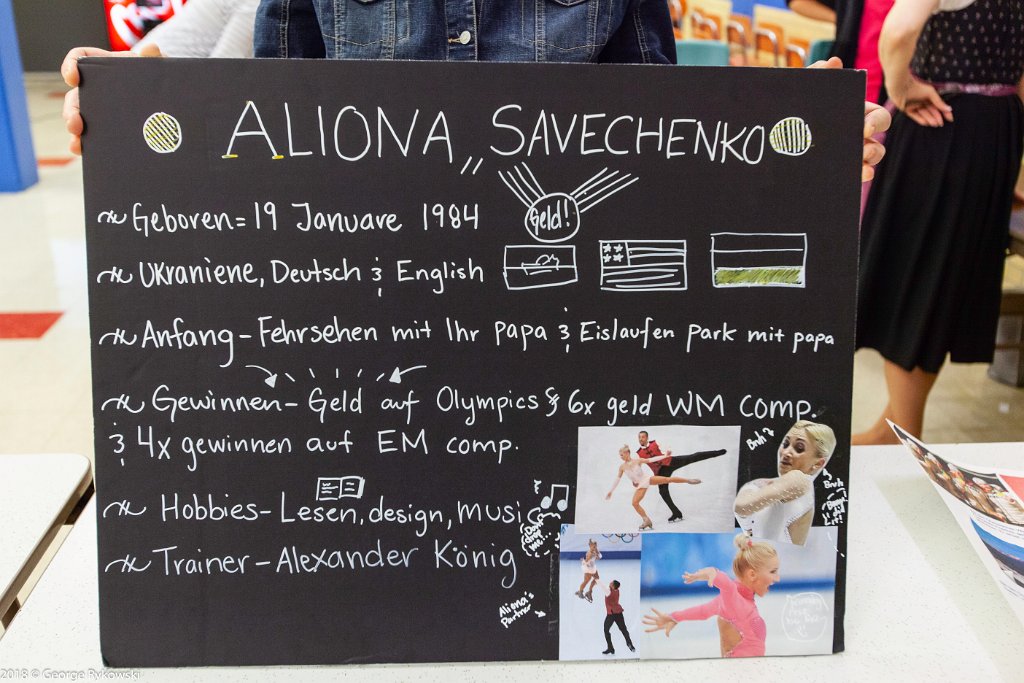 ALIONA SAVECHENKO
Geld!
Geboren = 19 Januare 1984
UKraniene, Deutsch & English
Anfang - Fehrsehen mit Ihr papa & Eislaufen park mit papa
Gewinnen - Geld auf Olympics & 6x geld WM comp.
& 4x gewinnen auf EM comp.
Bruh?
Bruh
Hobbies - Lesen, design, music
Don't drop me...
Trainer - Alexander König
Aliona's
Partner
2018 © George Rykowski